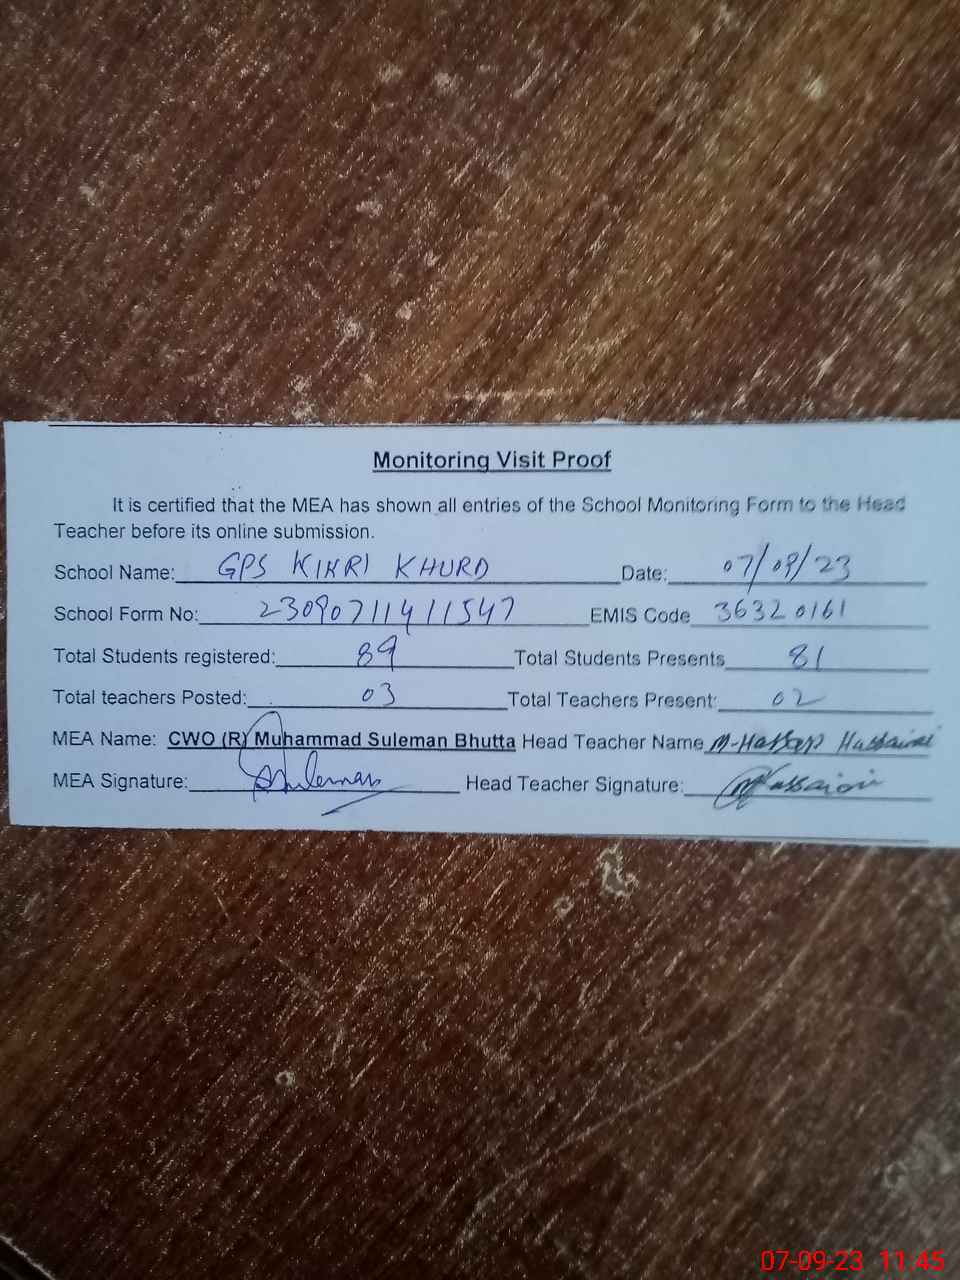 Monitoring Visit Proof
It is certified that the MEA has shown all entries of the School Monitoring Form to the Head
Teacher before its online submission.
School Name: GPS KIKRI KHURD Date: 07/09/23
School Form No: 23090711411547 EMIS Code 36320161
Total Students registered: 89 Total Students Presents 81
Total teachers Posted: 03 Total Teachers Present: 02
MEA Name: CWO (R) Muhammad Suleman Bhutta Head Teacher Name M-
MEA Signature: Suleman Head Teacher Signature:
07-09-23 11:45